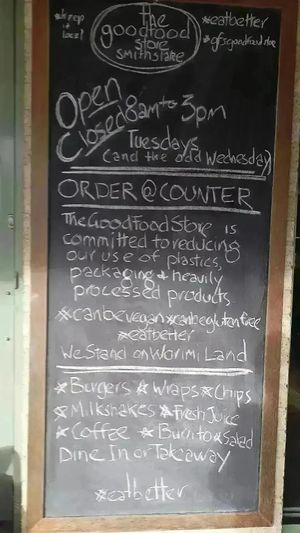 *keep it local
the goodfood store smithslake
*eatbetter
*gfsgoodfoodstore
Open 8am to 3pm
Closed Tuesdays
(and the odd Wednesday)
ORDER @ COUNTER
The Good Food Store is
committed to reducing
our use of plastics,
packaging & heavily
processed products.
*canbevegan *canbeglutenfree
*eatbetter
We Stand on Worimi Land
*Burgers *Wraps *Chips
*Milkshakes *Fresh Juice
*Coffee *Burrito & Salad
Dine In or Takeaway
*eatbetter